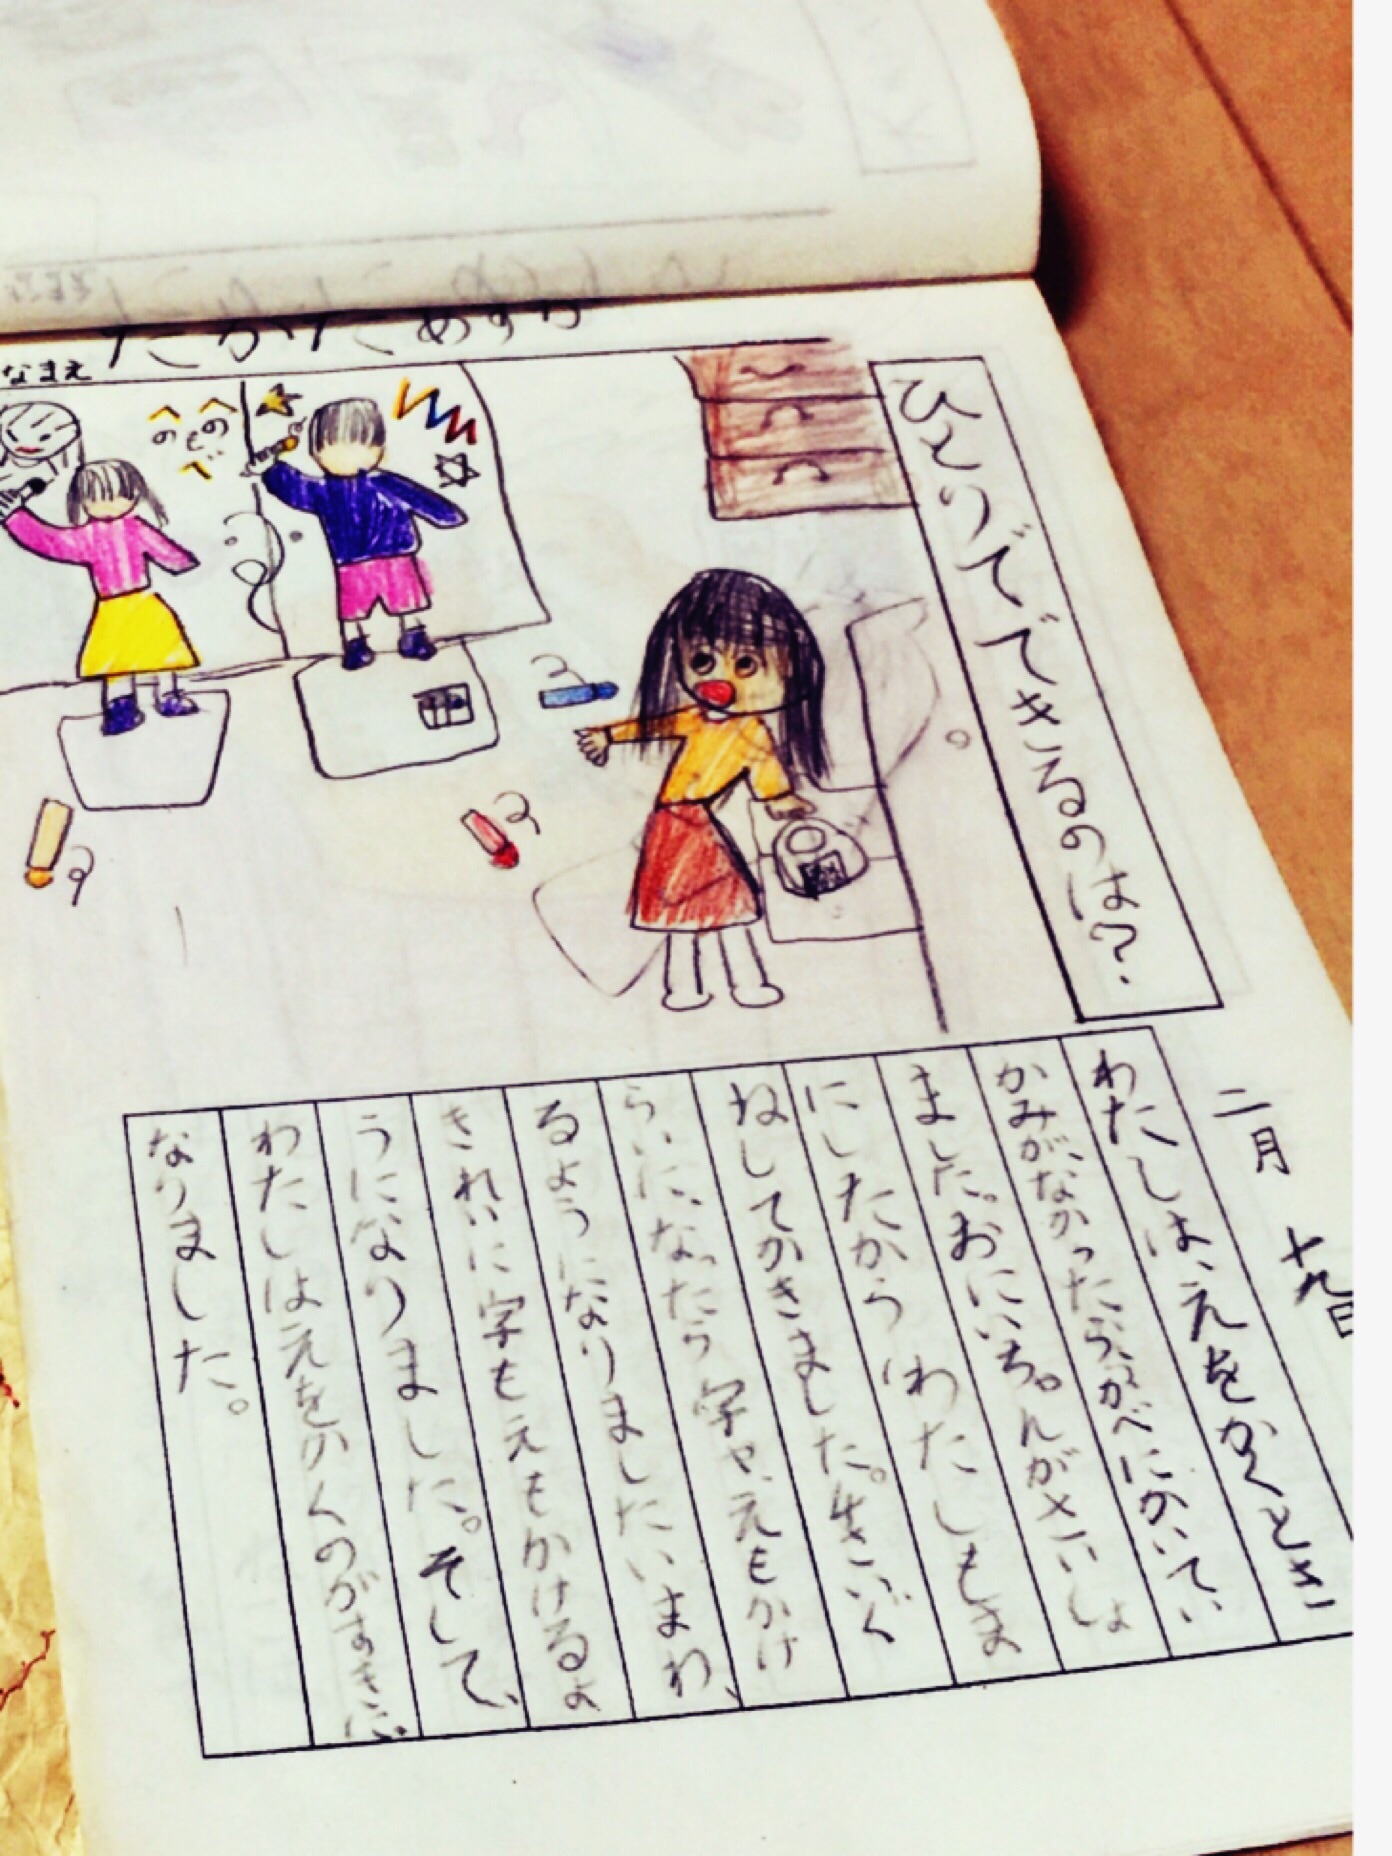 なまえ
ひとりでできるのは?
二月 十九日
わたしは、えをかくとき
かみが、なかったら、かべにかいてい
ました。おにいちゃんがさいしょ
にしたから わたしもま
ねしてかきました。
らいになったら字や、えもかけ
るようになりましたいまわ、
きれいに字もえもかけるよ
うになりました。そして、
わたしはえをかくのがすきに
なりました。
へのへの
も
へ